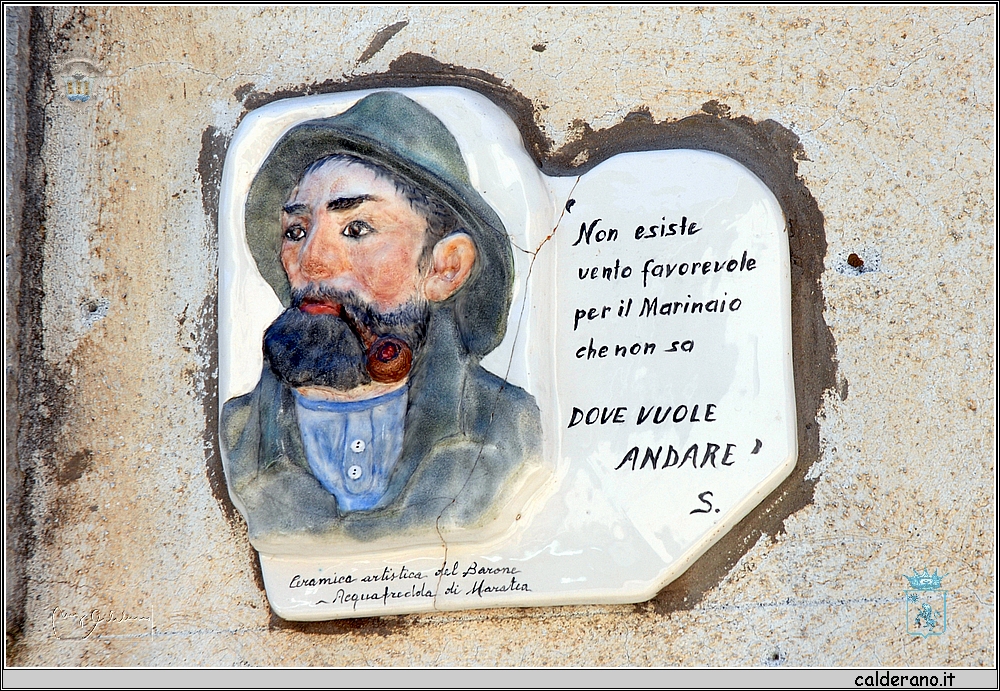 ' Non esiste
vento favorevole
per il Marinaio
che non sa
DOVE VUOLE
ANDARE '
S.
Ceramica artistica del Barone
~ Acquafredda di Maratea
calderano.it